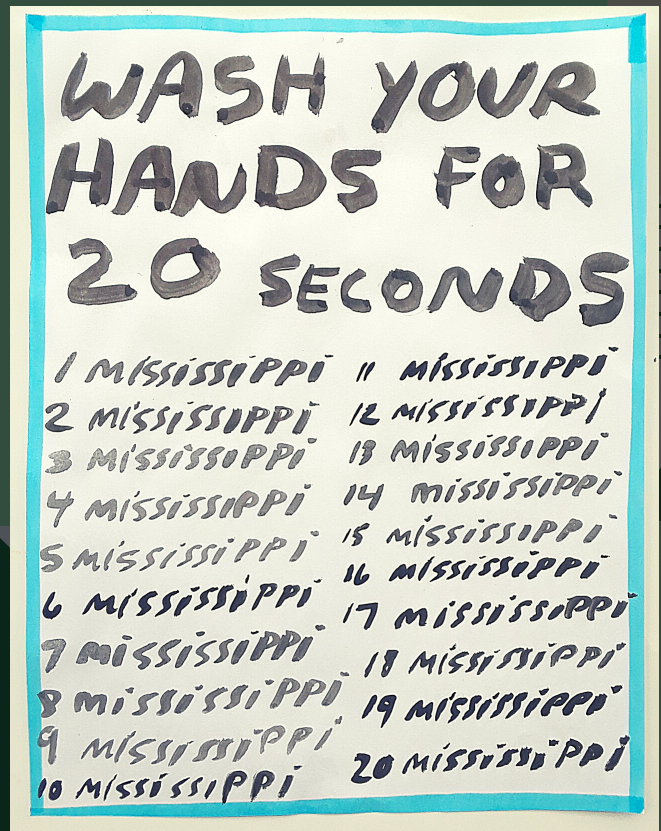 WASH YOUR
HANDS FOR
20 SECONDS
1 MISSISSIPPI
2 MISSISSIPPI
3 MISSISSIPPI
4 MISSISSIPPI
5 MISSISSIPPI
6 MISSISSIPPI
7 MISSISSIPPI
8 MISSISSIPPI
9 MISSISSIPPI
10 MISSISSIPPI
11 MISSISSIPPI
12 MISSISSIPPI
13 MISSISSIPPI
14 MISSISSIPPI
15 MISSISSIPPI
16 MISSISSIPPI
17 MISSISSIPPI
18 MISSISSIPPI
19 MISSISSIPPI
20 MISSISSIPPI